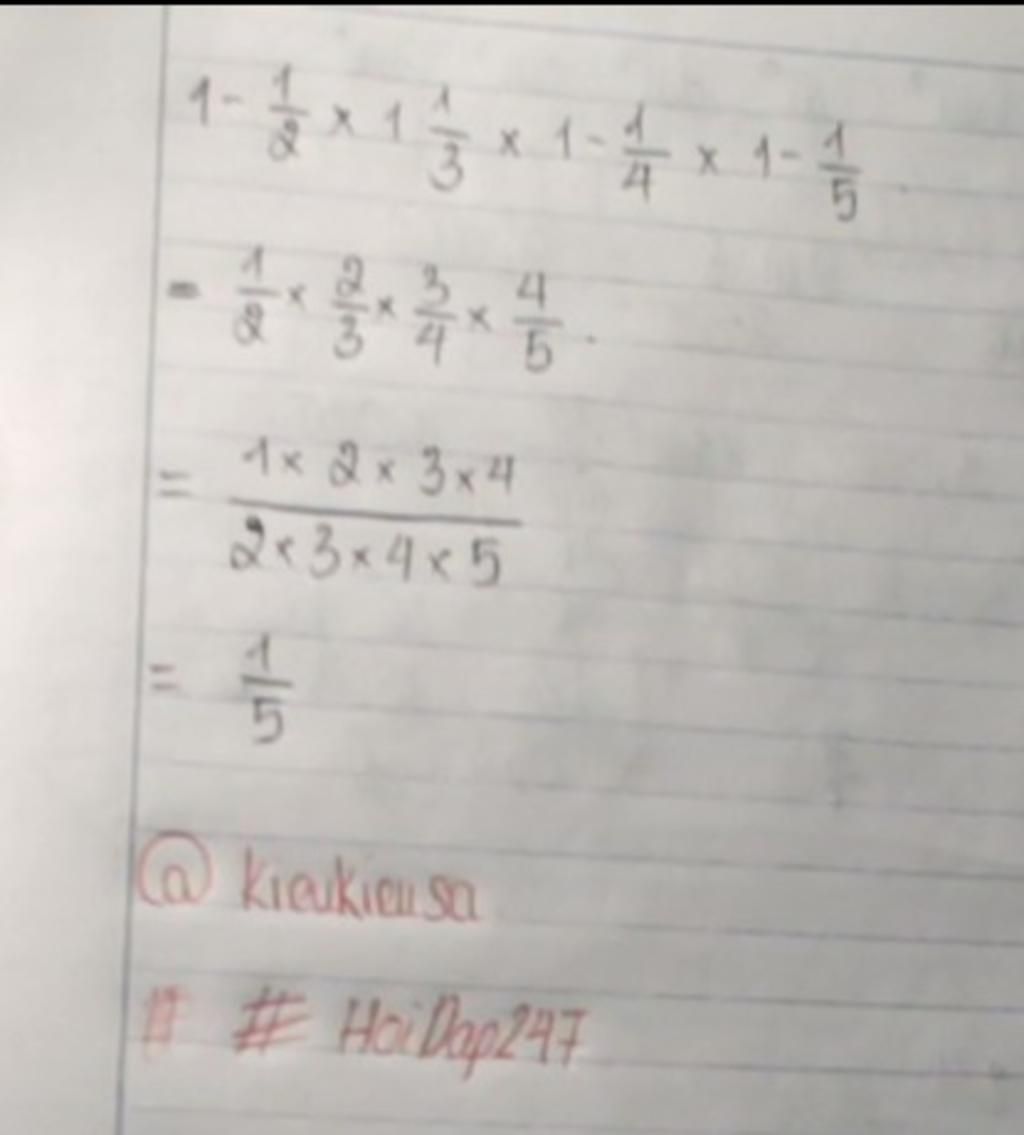 1 - 1/2 × 1 1/3 × 1 - 1/4 × 1 - 1/5
= 1/2 × 2/3 × 3/4 × 4/5 .
= (1 × 2 × 3 × 4)/(2 × 3 × 4 × 5)
= 1/5
@ kieukieusa
# # HoiDap247